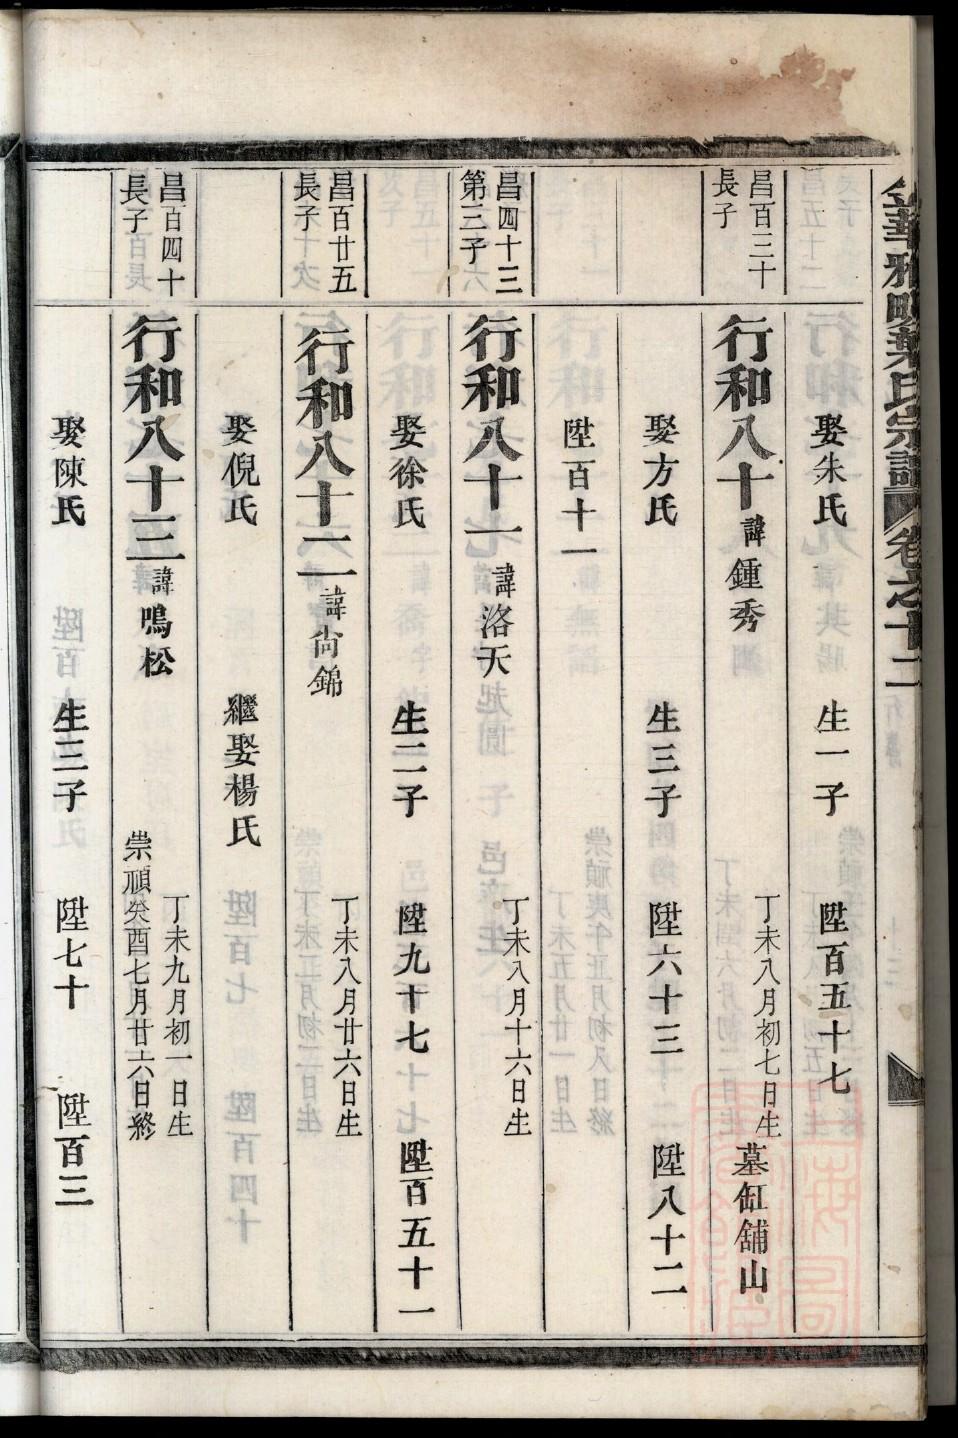 金華雅畈葉氏宗譜 卷之十二
娶朱氏 生一子 陞百五十七
昌百三十
長子
行和八十 諱鍾秀 丁未八月初七日生 墓缸舖山
娶方氏 生三子 陞六十三 陞八十二
陞百十一
昌四十三
第三子
行和八十一 諱洛天 丁未八月十六日生
娶徐氏 生二子 陞九十七 陞百五十一
昌百廿五
長子
行和八十二 諱尙錦 丁未八月廿六日生
娶倪氏 繼娶楊氏
昌百四十
長子
行和八十三 諱鳴松 丁未九月初一日生
崇禎癸酉七月廿六日終
娶陳氏 生三子 陞七十 陞百三